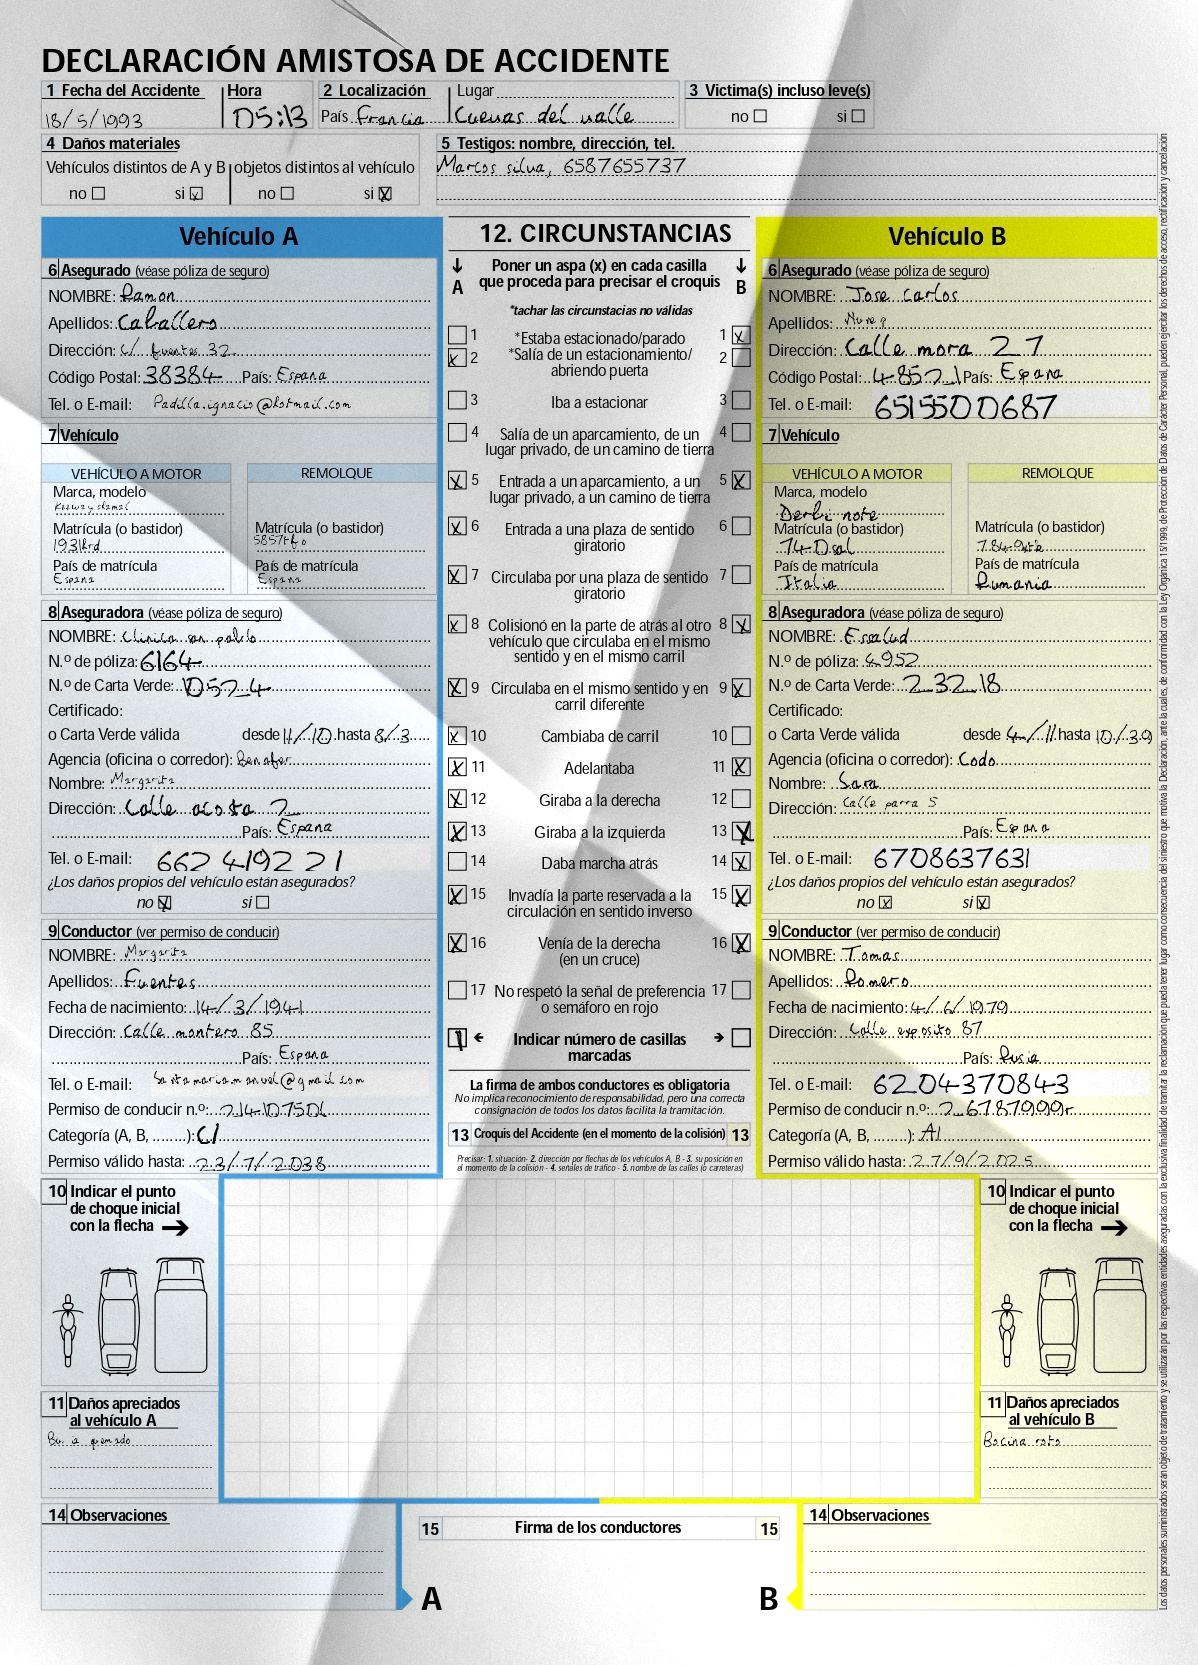 DECLARACIÓN AMISTOSA DE ACCIDENTE
1 Fecha del Accidente Hora 2 Localización Lugar 3 Victima(s) incluso leve(s)
18/5/1993 05:13 País Francia Cuevas del valle no si
4 Daños materiales
Vehículos distintos de A y B objetos distintos al vehículo
no si X no si X
5 Testigos: nombre, dirección, tel.
Marcos silva, 6587655737
Vehículo A
6 Asegurado (véase póliza de seguro)
NOMBRE: Ramon
Apellidos: Caballero
Dirección: C/ fuentes 32
Código Postal: 38384 País: Espana
Tel. o E-mail: Padilla.ignacio@hotmail.com
7 Vehículo
VEHÍCULO A MOTOR REMOLQUE
Marca, modelo
Matrícula (o bastidor) Matrícula (o bastidor)
País de matrícula País de matrícula
Espana Espana
8 Aseguradora (véase póliza de seguro)
NOMBRE: Clinica san pablo
N.º de póliza: 6164
N.º de Carta Verde: 0524
Certificado:
o Carta Verde válida desde 11/10 hasta 8/3
Agencia (oficina o corredor): Benafer
Nombre: Margarita
Dirección: Calle acosta 2
País: Espana
Tel. o E-mail: 662419221
¿Los daños propios del vehículo están asegurados?
no X si
9 Conductor (ver permiso de conducir)
NOMBRE: Margarita
Apellidos: Fuentes
Fecha de nacimiento: 14/3/1941
Dirección: Calle montero 85
País: Espana
Tel. o E-mail: Santamariamanuel@gmail.com
Permiso de conducir n.º:
Categoría (A, B, ........): C1
Permiso válido hasta: 23/7/2038
12. CIRCUNSTANCIAS
A Poner un aspa (x) en cada casilla que proceda para precisar el croquis B
*tachar las circunstacias no válidas
1 *Estaba estacionado/parado 1 X
X 2 *Salía de un estacionamiento/ 2
abriendo puerta
3 Iba a estacionar 3
4 Salía de un aparcamiento, de un 4
lugar privado, de un camino de tierra
X 5 Entrada a un aparcamiento, a un 5 X
lugar privado, a un camino de tierra
X 6 Entrada a una plaza de sentido 6
giratorio
X 7 Circulaba por una plaza de sentido 7
giratorio
X 8 Colisionó en la parte de atrás al otro 8 X
vehículo que circulaba en el mismo
sentido y en el mismo carril
X 9 Circulaba en el mismo sentido y en 9 X
carril diferente
X 10 Cambiaba de carril 10
X 11 Adelantaba 11 X
X 12 Giraba a la derecha 12
X 13 Giraba a la izquierda 13 X
14 Daba marcha atrás 14 X
X 15 Invadía la parte reservada a la 15 X
circulación en sentido inverso
X 16 Venía de la derecha 16 X
(en un cruce)
17 No respetó la señal de preferencia 17
o semáforo en rojo
Indicar número de casillas
marcadas
La firma de ambos conductores es obligatoria
No implica reconocimiento de responsabilidad, pero una correcta
consignación de todos los datos facilita la tramitación.
13 Croquis del Accidente (en el momento de la colisión) 13
Precisar: 1. situación- 2. dirección por flechas de los vehículos A, B - 3. su posición en
al momento de la colisión - 4. señales de tráfico - 5. nombre de las calles (o carreteras)
Vehículo B
6 Asegurado (véase póliza de seguro)
NOMBRE: Jose Carlos
Apellidos:
Dirección: Calle mora 27
Código Postal: 48521 País: Espana
Tel. o E-mail: 6515500687
7 Vehículo
VEHÍCULO A MOTOR REMOLQUE
Marca, modelo
Derbi note
Matrícula (o bastidor) Matrícula (o bastidor)
País de matrícula País de matrícula
Italia Rumania
8 Aseguradora (véase póliza de seguro)
NOMBRE: Essalud
N.º de póliza: 4952
N.º de Carta Verde: 23218
Certificado:
o Carta Verde válida desde 4/11 hasta 10/39
Agencia (oficina o corredor): Codo
Nombre: Sara
Dirección: Calle parra 5
País: Espana
Tel. o E-mail: 6708637631
¿Los daños propios del vehículo están asegurados?
no X si X
9 Conductor (ver permiso de conducir)
NOMBRE: Tomas
Apellidos: Romero
Fecha de nacimiento: 4/6/1979
Dirección: Calle esposito 87
País: Rusia
Tel. o E-mail: 6204370843
Permiso de conducir n.º: 26787999r
Categoría (A, B, ........): A1
Permiso válido hasta: 27/9/2025
10 Indicar el punto
de choque inicial
con la flecha
11 Daños apreciados
al vehículo A
10 Indicar el punto
de choque inicial
con la flecha
11 Daños apreciados
al vehículo B
Bocina rota
14 Observaciones
15 Firma de los conductores 15
A B
14 Observaciones